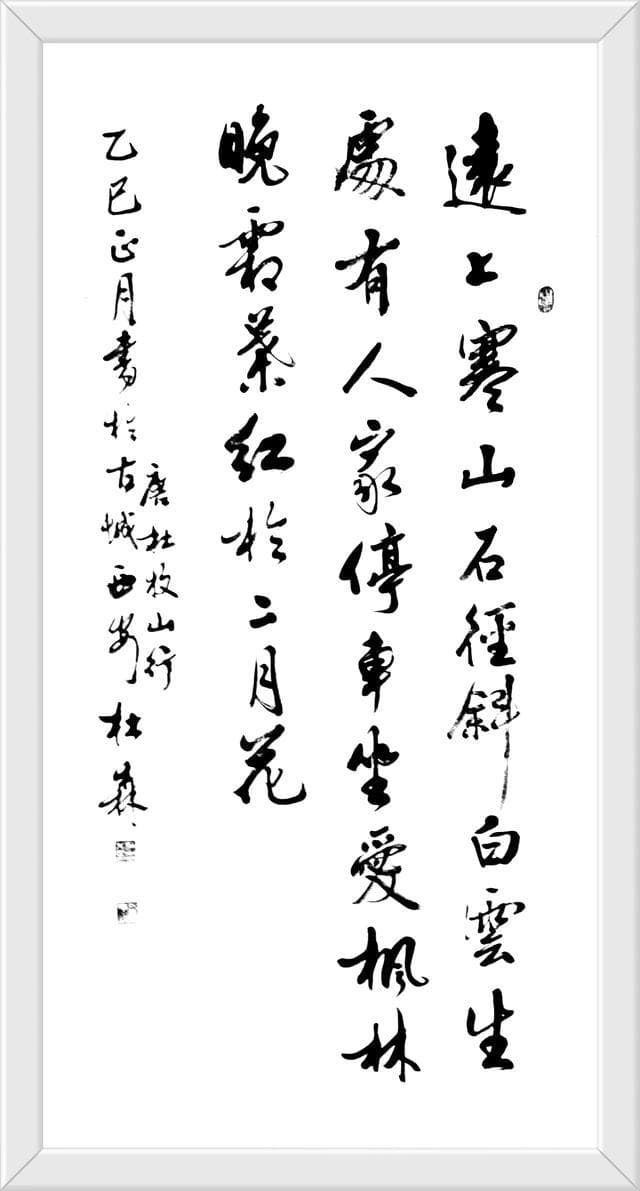 遠上寒山石徑斜白雲生
處有人家停車坐愛楓林
晚霜葉紅於二月花
唐杜牧山行
乙巳正月書於古城西安杜森